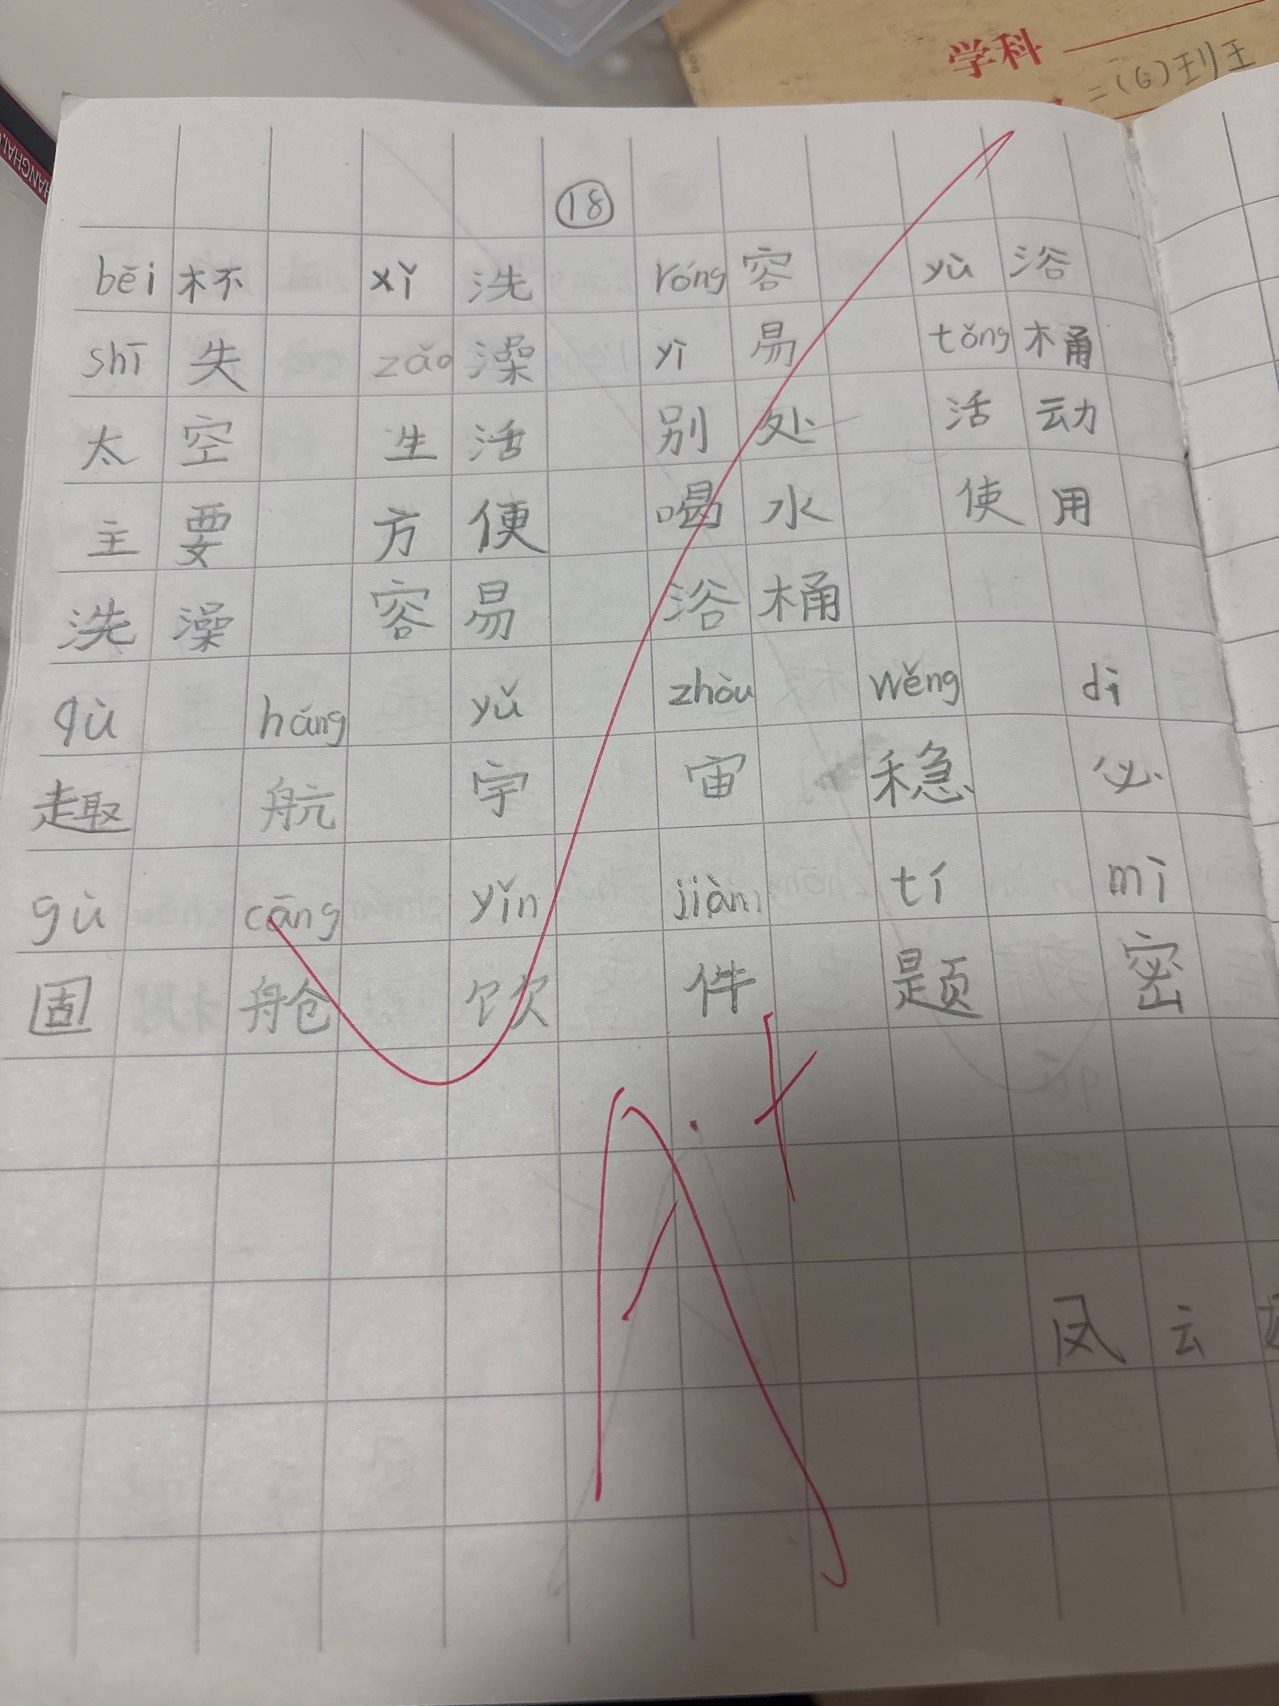 学科
二(6)班王
18
bēi 杯 xǐ 洗 róng 容 yù 浴
shī 失 zǎo 澡 yì 易 tǒng 桶
太空 生活 别处 活动
主要 方便 喝水 使用
洗澡 容易 浴桶
qù háng yǔ zhòu wěng dì
趣 航 宇 宙 稳 必
gù cāng yǐn jiàn tí mì
固 舱 饮 件 题 密
A+
风云